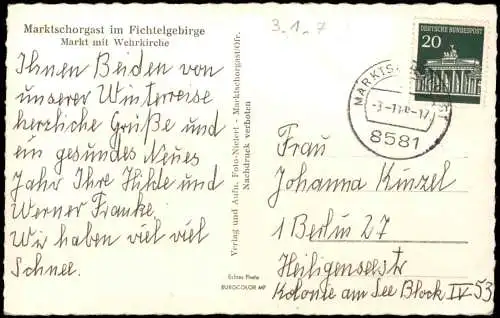 Marktschorgast im Fichtelgebirge
Markt mit Wehrkirche
3_1_7
Ihnen Beiden von
unserer Winterreise
herzliche Grüße und
ein gesundes Neues
Jahr Ihre Hilde und
Werner Franke.
Wir haben viel viel
Schnee.
Verlag und Aufn. Foto-Nietert - Marktschorgast/Ofr.
Nachdruck verboten
Echtes Photo
EUROCOLOR MP
DEUTSCHE BUNDESPOST
20
8581
Frau
Johanna Kunzel
1 Berlin 27
Heiligenseestr
Kolonie am See Block IV 53